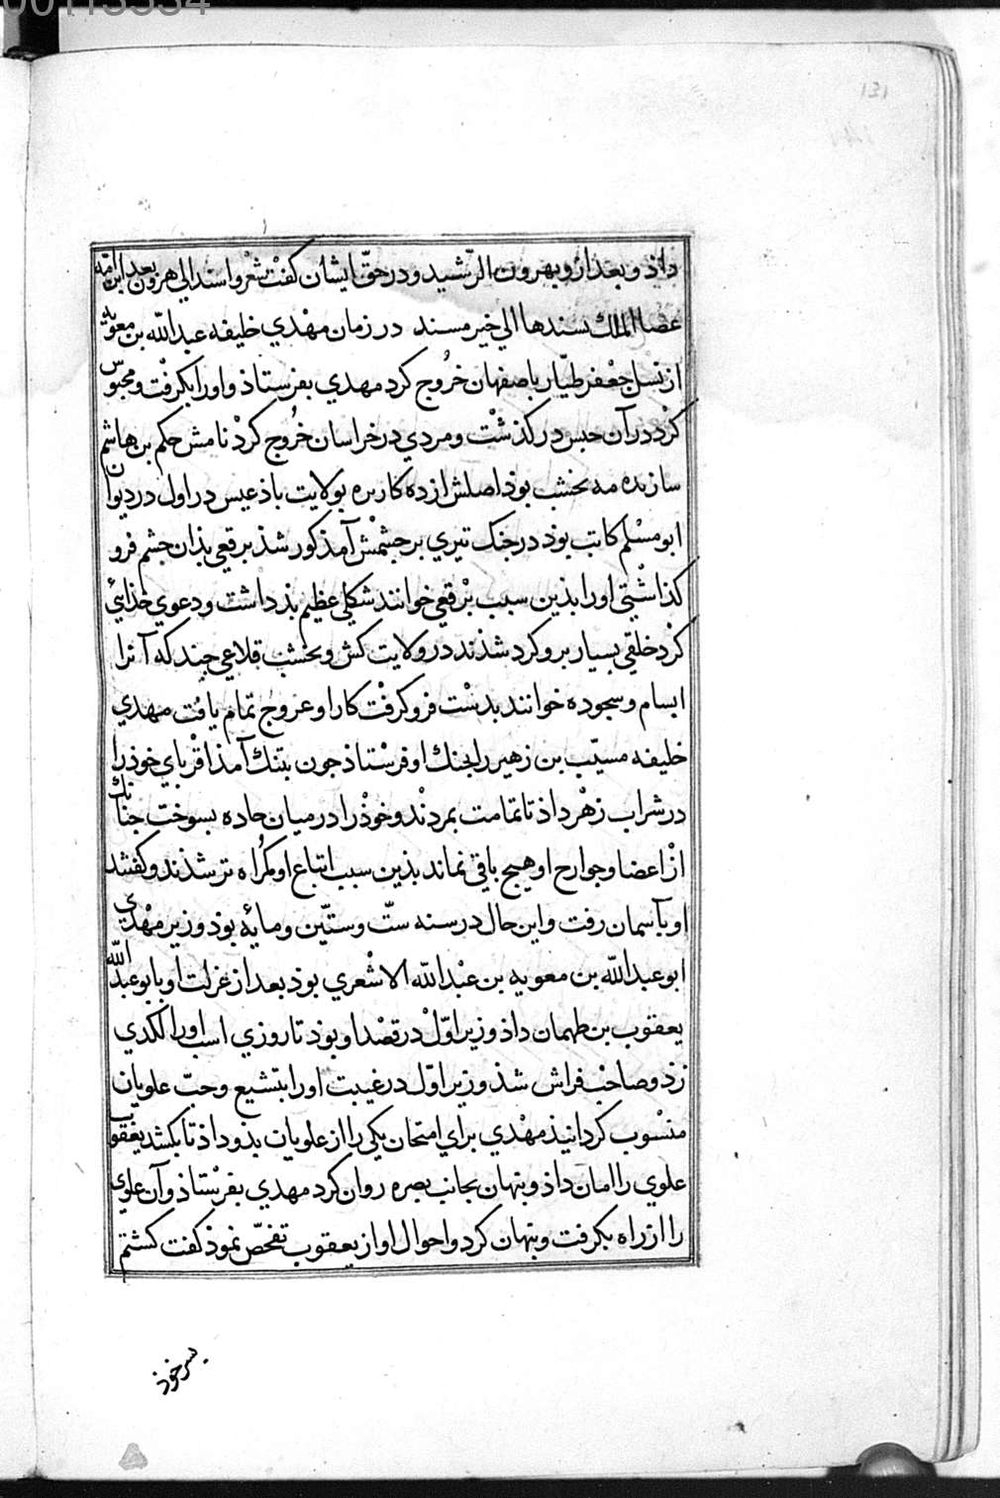 00113534
131
داذ و بعد ازو بهرون الرشید و در حقّ ایشان کفت شعر واسندا الی هرون بعد ابن امه
عصا الملک یسندها الی خیر مسند در زمان مهدي خلیفه عبد اللّه بن معویه
از نسل جعفر طیّار باصفهان خُروج کرد مهدي بفرستاذ و اورا بکرفت و محبوس
کرد در آن حبس در کذشت و مردي در خراسان خُروج کرد نامش حکم بن هاشم
سازنده مه نخشب بوذ اصلش از ده کازره بولایت باذغیس در اول در دیوان
ابو مسْلم کاتب بوذ در جنک تیري بر جشمش آمذ کور شذ برقعي بذان جشم فرو
کذاشتي اورا بذین سبب برقعي خوانند شکلي عظیم بذ داشت و دعوي خذايئ
کرد خلقي بسیار برو کرد شذند در ولایت کش و نخشب قلاعي جند که آنرا
ابسام و سجوده خوانند بدست فرو کرفت کار او عروج تمام یافت مهدي
خلیفه مسیّب بن زهیر را بجنك او فرستاذ جون بتنك آمذ اقرباي خوذ را
در شراب زهر داذ تا تمامت بمردند و خوذ را در میان حاده بسوخت جنانك
از اعضا و جوارح او هیج باقي نماند بذین سبب اتباع او کمراه تر شذند و کفتند
او بآسمان رفت و این حال در سنه ستّ و ستّین و مایة بوذ وزیر مهدي
ابو عبد اللّه بن معویه بن عبد اللّه الاشعري بوذ بعد از عزلت او بابو عبد اللّه
یعقوب بن طهمان داذ وزیر اوّل در قصد او بوذ تا روزي اسب اورا لکدي
زذ و صاحب فراش شذ وزیر اوّل در غیبت اورا بتشیع و حبّ علویان
منسوب کردانیذ مهدي براي امتحان یکي را از علویان بذو داذ تا بکشد یعقوب
علوي را امان داذ و بنهان بجانب بصره روان کرد مهدي بفرستاذ و آن علوي
را از راه بکرفت و بنهان کرد و احوال او از یعقوب تفحّص نموذ کفت کشتم
بسر خوذ